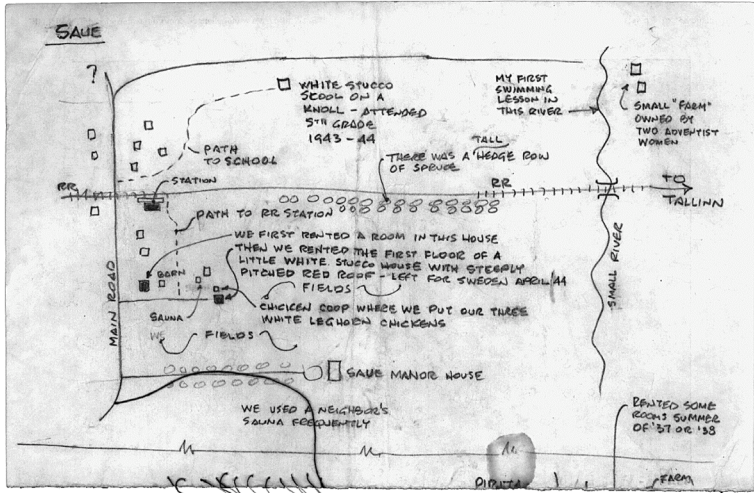 SAUE
?
WHITE STUCCO
SCOOL ON A
KNOLL - ATTENDED
5TH GRADE
1943-44
MY FIRST
SWIMMING
LESSON IN
THIS RIVER
SMALL "FARM"
OWNED BY
TWO ADVENTIST
WOMEN
PATH
TO SCHOOL
TALL
THERE WAS A HEDGE ROW
OF SPRUCE
STATION
RR
RR
TO
TALLINN
PATH TO RR STATION
WE FIRST RENTED A ROOM IN THIS HOUSE
THEN WE RENTED THE FIRST FLOOR OF A
LITTLE WHITE STUCCO HOUSE WITH STEEPLY
PITCHED RED ROOF - LEFT FOR SWEDEN APRIL '44
BARN
FIELDS
SAUNA
CHICKEN COOP WHERE WE PUT OUR THREE
WHITE LEGHORN CHICKENS
MAIN ROAD
SMALL RIVER
WE
FIELDS
SAUE MANOR HOUSE
WE USED A NEIGHBOR'S
SAUNA FREQUENTLY
RENTED SOME
ROOMS SUMMER
OF '37 OR '38
PIRITA
FARM